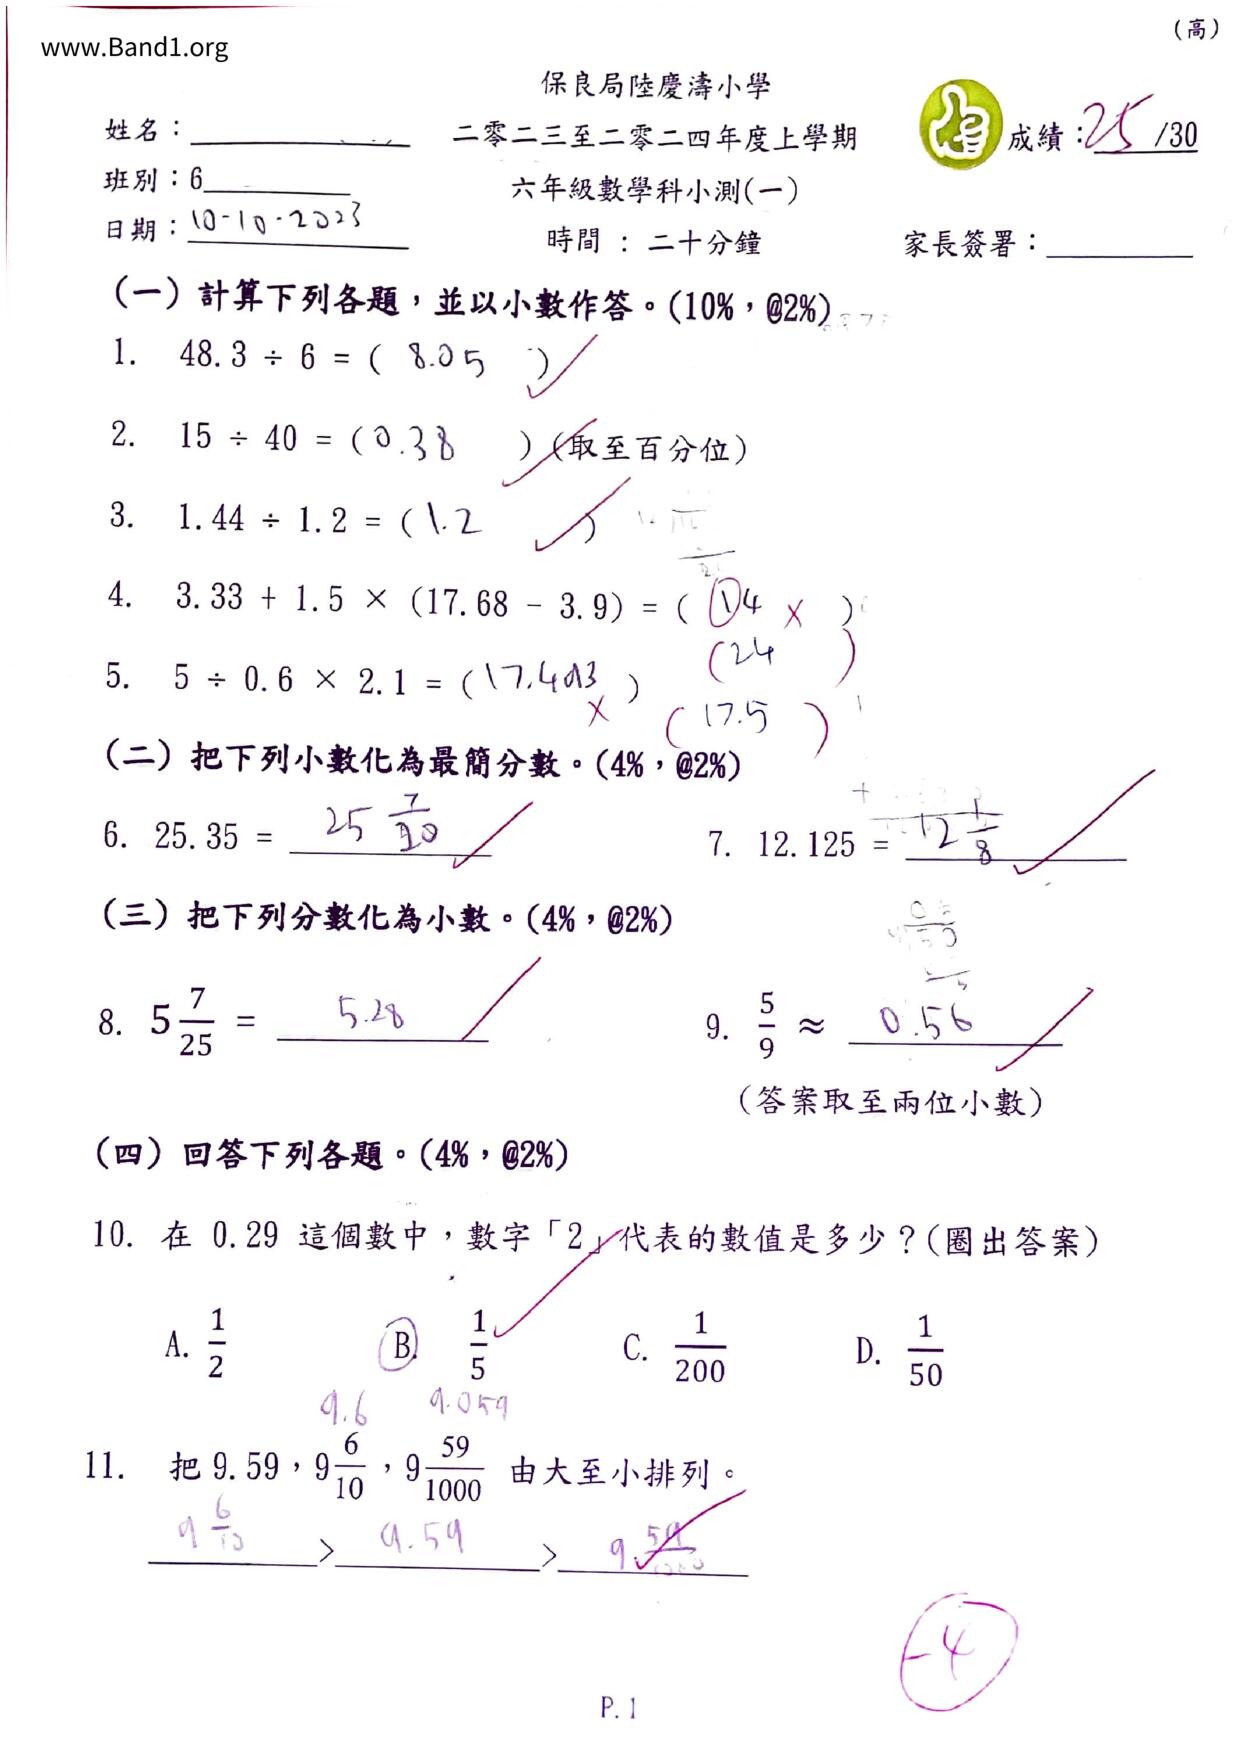 (高)
www.Band1.org
保良局陸慶濤小學
姓名：
二零二三至二零二四年度上學期
成績：25/30
班別：6
六年級數學科小測(一)
日期：10-10-2023
時間 : 二十分鐘
家長簽署：
(一) 計算下列各題，並以小數作答。(10%，@2%)
1. 48.3 ÷ 6 = ( 8.05 )
2. 15 ÷ 40 = (0.38 ) (取至百分位)
3. 1.44 ÷ 1.2 = (1.2 )
4. 3.33 + 1.5 × (17.68 - 3.9) = ( 14 × )
(24 )
5. 5 ÷ 0.6 × 2.1 = (17.493 )
×
( 17.5 )
(二) 把下列小數化為最簡分數。(4%，@2%)
6. 25.35 = 25 7/20
7. 12.125 = 12 1/8
(三) 把下列分數化為小數。(4%，@2%)
8. 5 7/25 = 5.28
9. 5/9 ≈ 0.56
(答案取至兩位小數)
(四) 回答下列各題。(4%，@2%)
10. 在 0.29 這個數中，數字「2」代表的數值是多少？(圈出答案)
A. 1/2 B. 1/5 C. 1/200 D. 1/50
9.6 9.059
11. 把 9.59，9 6/10，9 59/1000 由大至小排列。
9 6/10 > 9.59 > 9 59/1000
-4
P.1